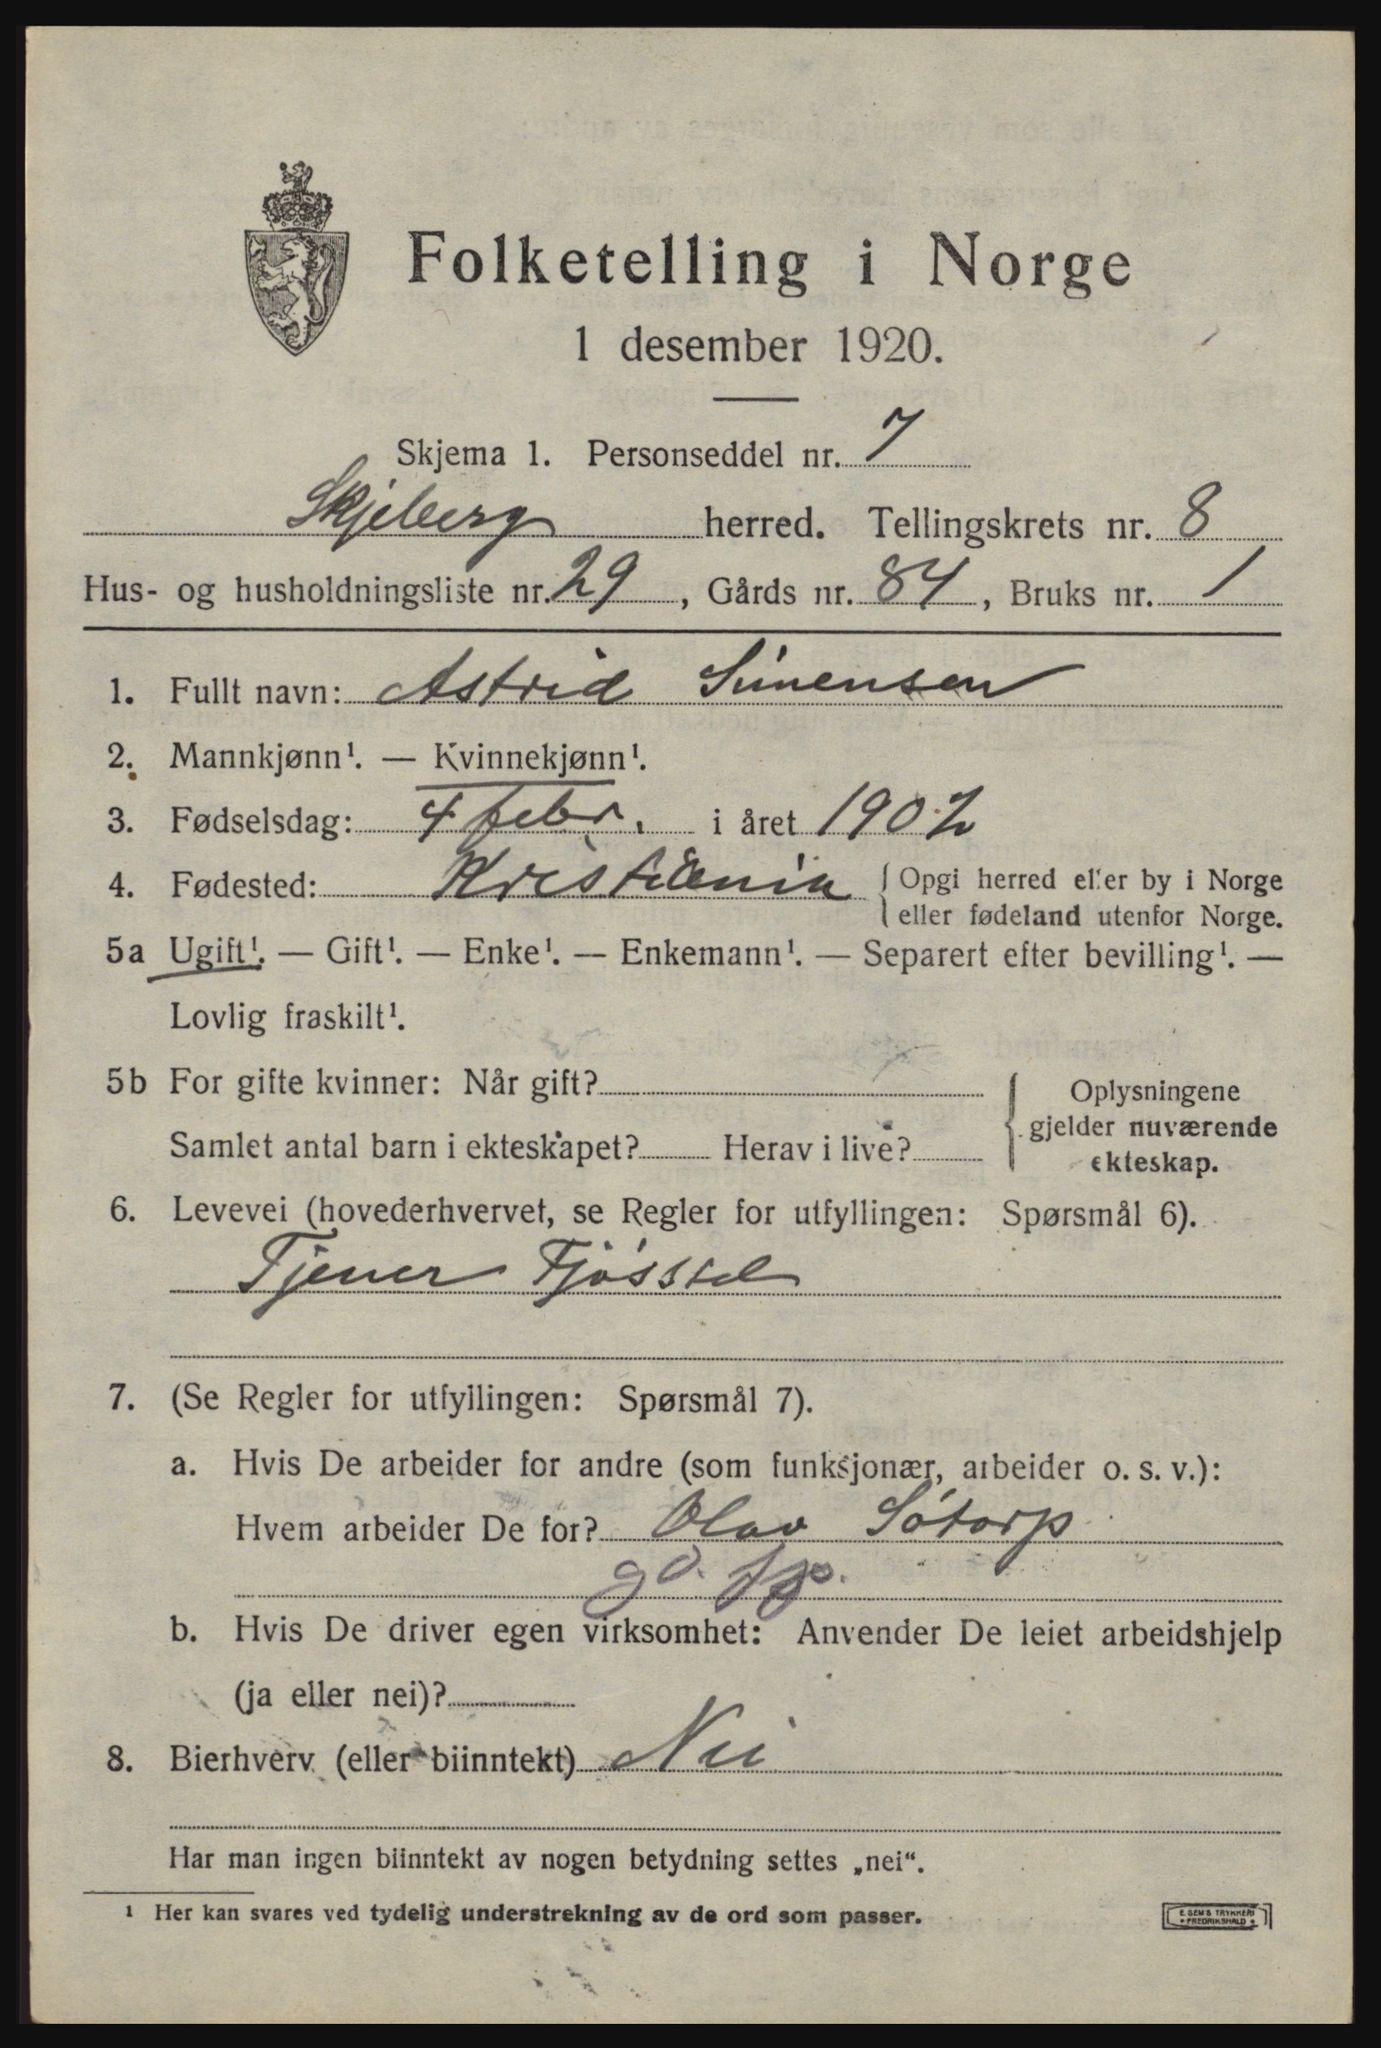 Folketelling i Norge
1 desember 1920.
Skjema 1. Personseddel nr. 7
Skjeberg herred. Tellingskrets nr. 8
Hus- og husholdningsliste nr. 29, Gårds nr. 84, Bruks nr. 1
1. Fullt navn: Astrid Simensen
2. Mannkjønn¹. — Kvinnekjønn¹.
3. Fødselsdag: 4 febr. i året 1902
4. Fødested: Kristiania { Opgi herred eller by i Norge
eller fødeland utenfor Norge.
5a Ugift¹. — Gift¹. — Enke¹. — Enkemann¹. — Separert efter bevilling¹. —
Lovlig fraskilt¹.
5b For gifte kvinner: Når gift? { Oplysningene
gjelder nuværende
Samlet antal barn i ekteskapet? Herav i live? ekteskap.
6. Levevei (hovederhvervet, se Regler for utfyllingen: Spørsmål 6).
Tjener Fjósstel
7. (Se Regler for utfyllingen: Spørsmål 7).
a. Hvis De arbeider for andre (som funksjonær, arbeider o. s. v.):
Hvem arbeider De for? Olav Sótorp
b. Hvis De driver egen virksomhet: Anvender De leiet arbeidshjelp
(ja eller nei)?
8. Bierhverv (eller biinntekt) Nei
Har man ingen biinntekt av nogen betydning settes „nei“.
¹ Her kan svares ved tydelig understrekning av de ord som passer.
E. SEM'S TRYKKERI
• FREDRIKSHALD •